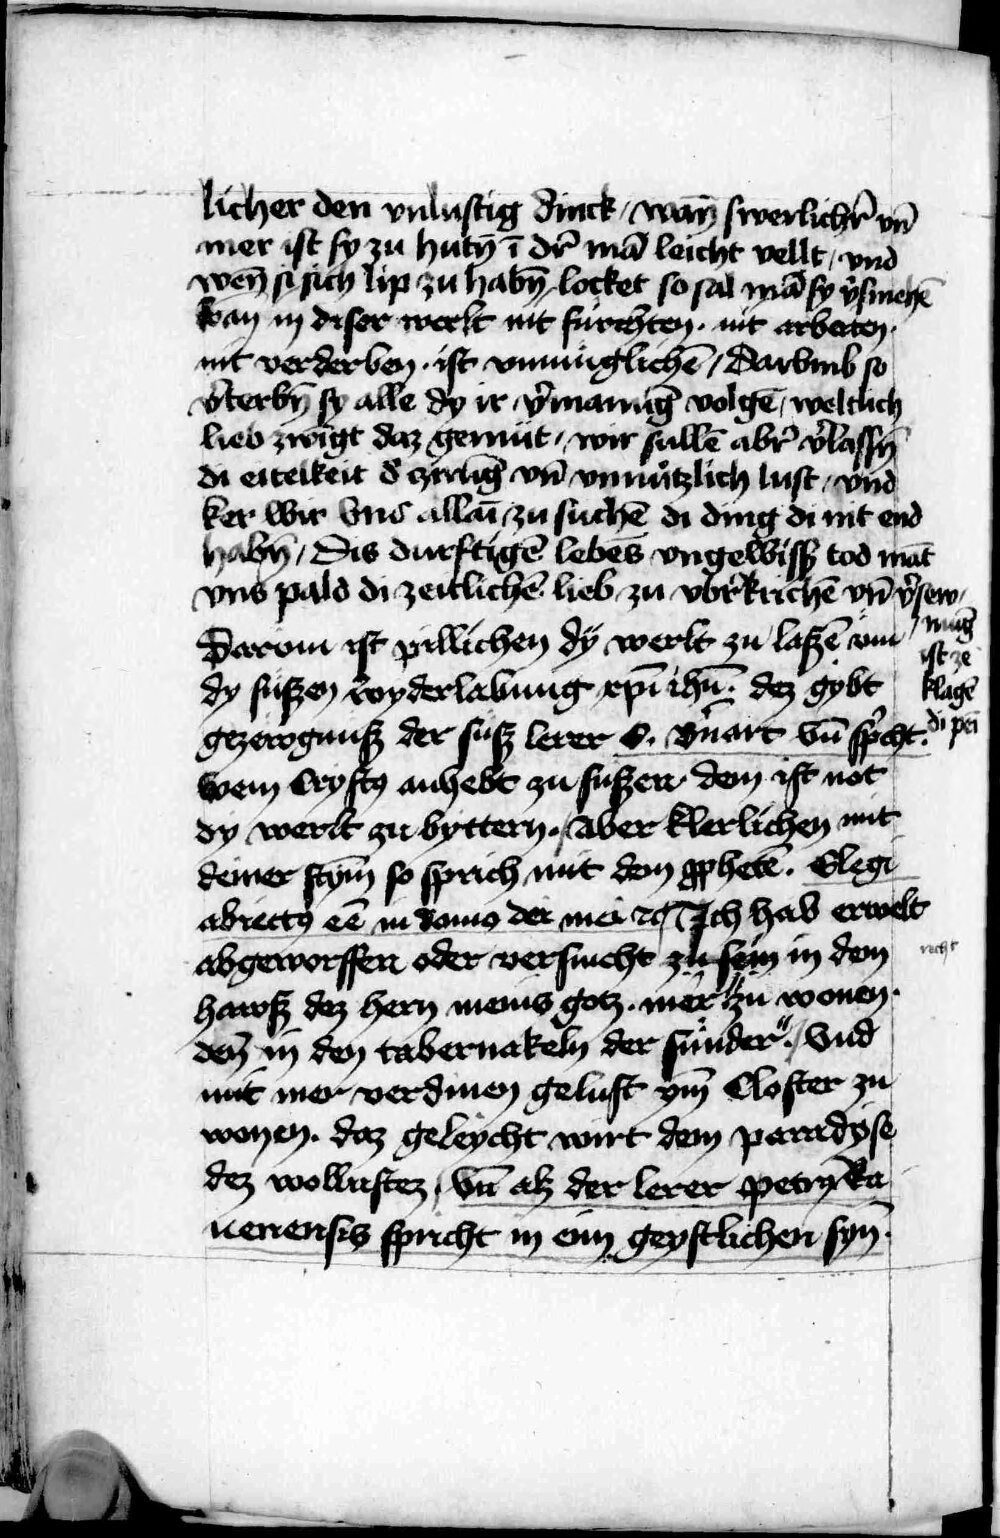 licher den vnlustig dinck / wañ swerlichr̄ vn̄
mer ist sy zu hutn̄ ī dr̄ mā leicht vellt / vnd
wen̄ si sich lip zu habn̄ locket so sal mā sy v̓smehē
wan in diser werlt nit fürchten · nit arbeiten ·
nit verderben · ist vnmüglichē / Darvmb so
v̓terbn̄ sy alle dy ir v̓manūg volgē / weltlich
lieb zwīgt daz gemüt / wir sullē abr̄ v̓lassn̄
di eitelkeit d̓ vn̄ vnnützlich lust / vnd
ker wir vns allaī zu suchē di ding di nit end
habn̄ / Dis durftigē lebēs vngewissz tod māt
vns pald di zeitlichē lieb zu vbr̄krichē vn̄ v̓sew /
mūg
ist ze
klagē
di peī
Darom ist pillichen dÿ werlt zu laßē vm
dy süßen wyderlabung xp̄i ih̄u · dez gybt
gezewgnuß der süß lerer S. Bn̄art vn̄ sp̓cht ·
wem Crystꝰ anhebt zu süßen dem ist not
dy werlt zu byttern · / aber klerlichen mit
deiner stym̄ so sprich mit dem ꝓphetē · Elegi
abiectꝰ eē in domo dei mei ⁊c̄ / Ich hab erwelt
abgeworffen oder versmecht zu sein in dem
recht
hawß dez hern meins gotz · mer zu wonen ·
den̄ in den tabernakeln der sünder · / vnd
mit mer verdinen gelust ym̄ Closter zu
wonen · daz geleycht wirt dem paradyse
dez wollustez / vn̄ alz der lerer petrꝰ Ra
uenensis spricht in eim geystlichen syn̄ ·